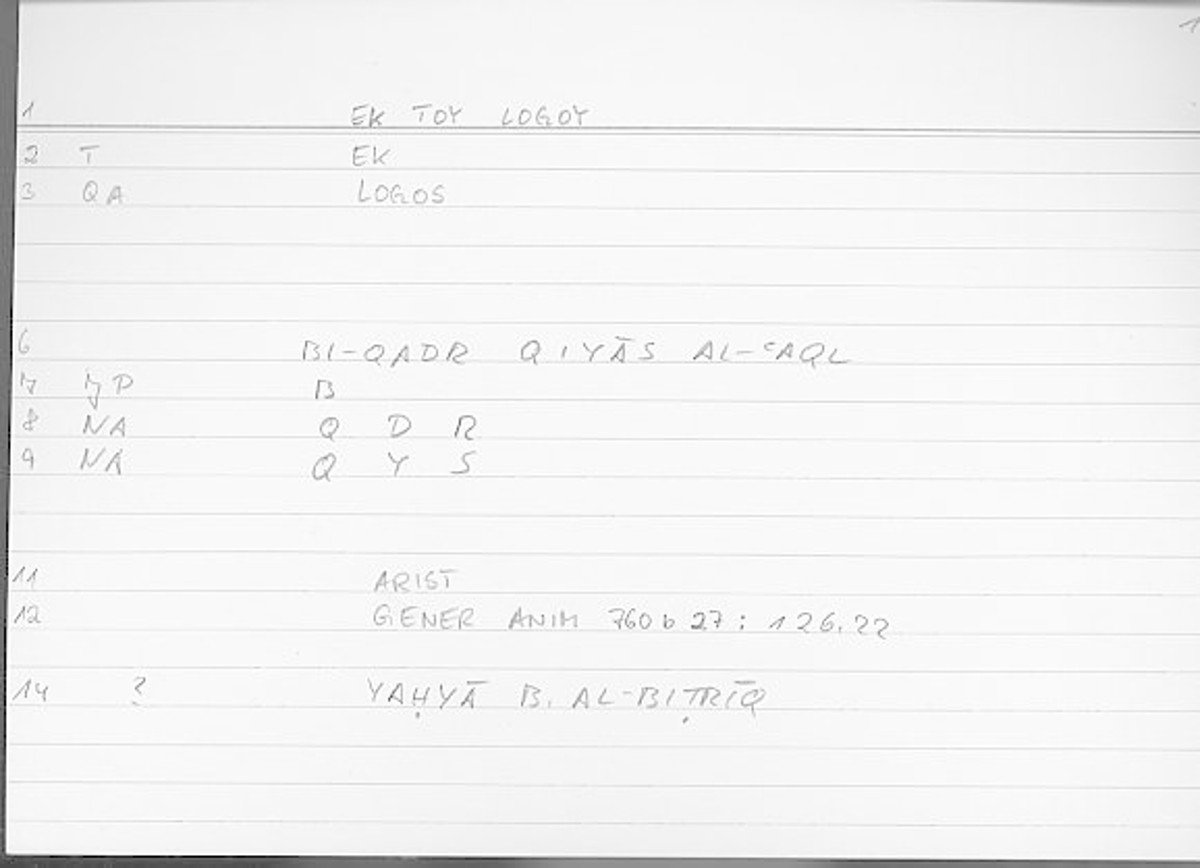 1
1 EK TOY LOGOY
2 T EK
3 QA LOGOS
6 BI-QADR QIYĀS AL-ʿAQL
7 B
8 NA Q D R
9 NA Q Y S
11 ARIST
12 GENER ANIM 760 b 27 : 126.22
14 ? YAḤYĀ B. AL-BIṬRĪQ